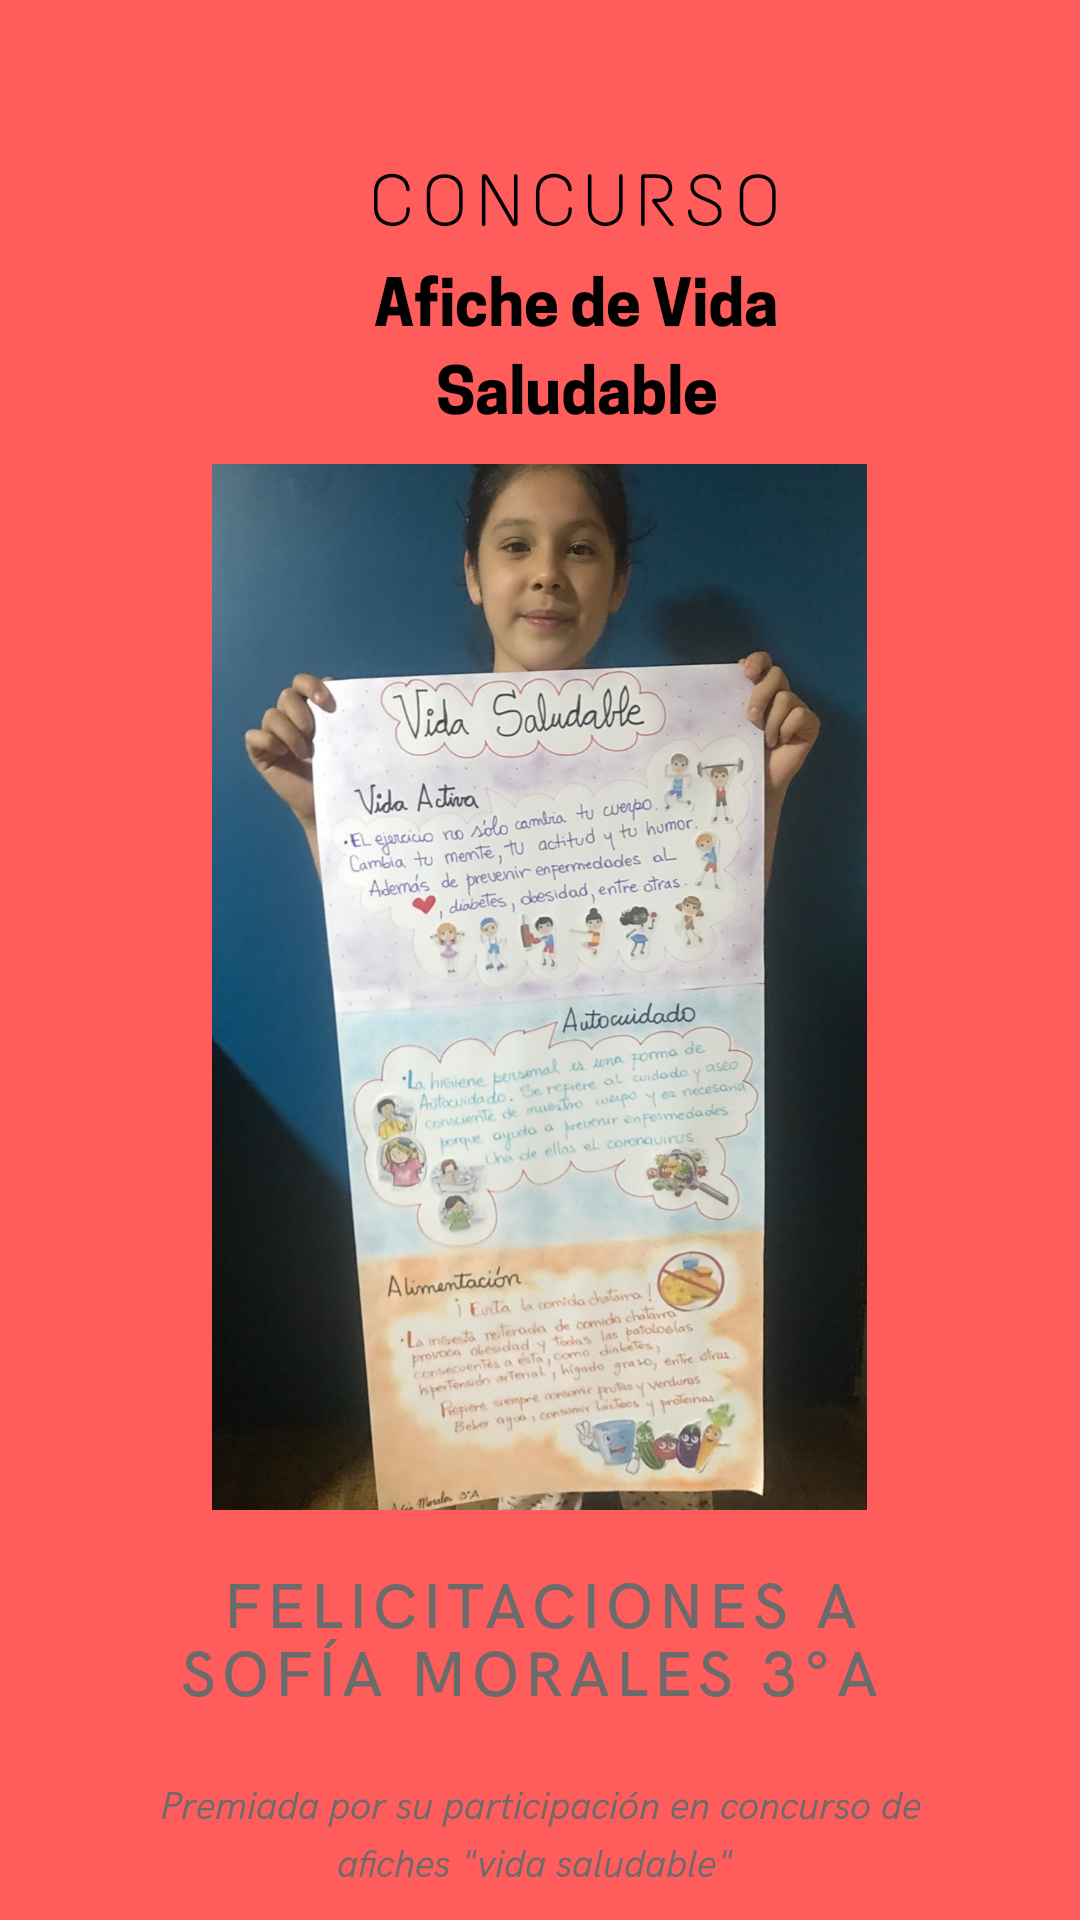 CONCURSO
Afiche de Vida
Saludable
Vida Saludable
Vida Activa
•EL ejercicio no sólo cambia tu cuerpo.
Cambia tu mente, tu actitud y tu humor.
Además de prevenir enfermedades al
, diabetes, obesidad, entre otras.
Autocuidado
•La higiene personal es una forma de
Autocuidado. Se refiere al cuidado y aseo
consciente de nuestro cuerpo y es necesaria
porque ayuda a prevenir enfermedades
Una de ellas el coronavirus
Alimentación
¡ Evita la comida chatarra !
•La ingesta reiterada de comida chatarra
provoca obesidad y todas las patologías
consecuentes a ésta, como diabetes,
hipertensión arterial, hígado graso, entre otras.
Prefiere siempre consumir frutas y verduras
Beber agua, consumir Lácteos y proteínas.
Morales 3°A
FELICITACIONES A
SOFÍA MORALES 3°A
Premiada por su participación en concurso de
afiches "vida saludable"